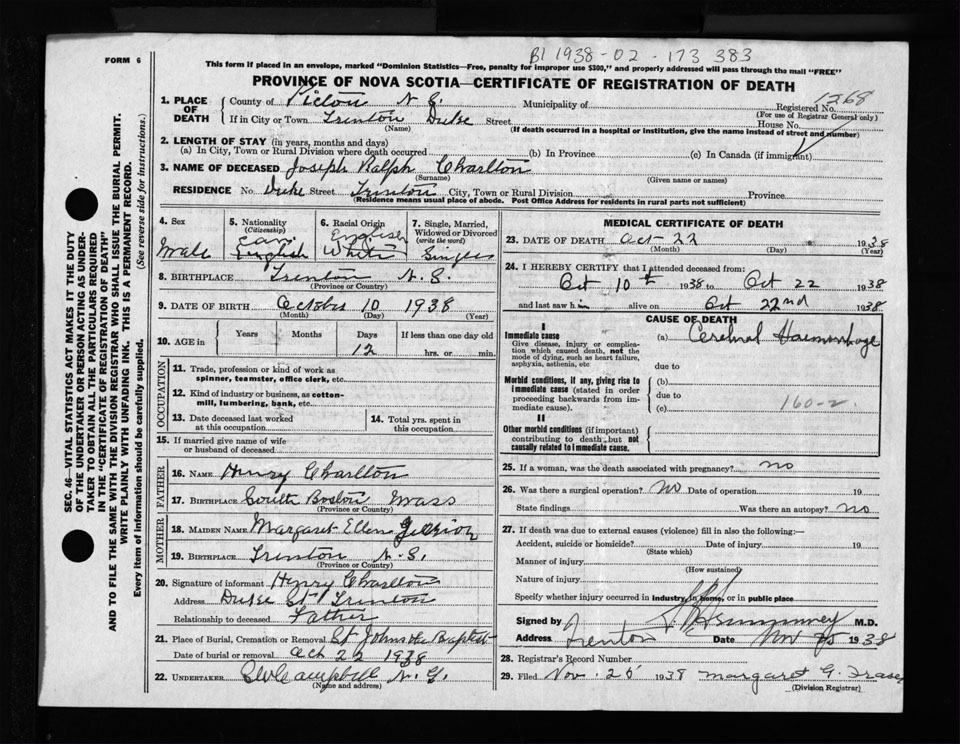 FORM 6
B1 1938-02-173383
This form if placed in an envelope, marked "Dominion Statistics—Free, penalty for improper use $300," and properly addressed will pass through the mail "FREE"
PROVINCE OF NOVA SCOTIA—CERTIFICATE OF REGISTRATION OF DEATH
1. PLACE OF DEATH County of Pictou N.S. Municipality of Registered No. 1268
(For use of Registrar General only)
If in City or Town Trenton Duke Street House No.
(Name) (If death occurred in a hospital or institution, give the name instead of street and number)
2. LENGTH OF STAY (in years, months and days)
(a) In City, Town or Rural Division where death occurred (b) In Province (c) In Canada (if immigrant)
3. NAME OF DECEASED Joseph Ralph Charlton
(Surname) (Given name or names)
RESIDENCE No. Duke Street Trenton City, Town or Rural Division Province
(Residence means usual place of abode. Post Office Address for residents in rural parts not sufficient)
4. Sex 5. Nationality (Citizenship) 6. Racial Origin 7. Single, Married, Widowed or Divorced (write the word)
Male Can English English White Single
8. BIRTHPLACE Trenton N.S.
(Province or Country)
9. DATE OF BIRTH October 10 1938
(Month) (Day) (Year)
10. AGE in Years Months Days If less than one day old
12 hrs. or min.
OCCUPATION
11. Trade, profession or kind of work as spinner, teamster, office clerk, etc.
12. Kind of industry or business, as cotton-mill, lumbering, bank, etc.
13. Date deceased last worked at this occupation
14. Total yrs. spent in this occupation
15. If married give name of wife or husband of deceased
FATHER
16. NAME Henry Charlton
17. BIRTHPLACE South Boston Mass
(Province or Country)
MOTHER
18. MAIDEN NAME Margaret Ellen
19. BIRTHPLACE Trenton N.S.
(Province or Country)
20. Signature of informant Henry Charlton
Address Duke St Trenton
Relationship to deceased Father
21. Place of Burial, Cremation or Removal St Johns the Baptist
Date of burial or removal Oct 22 1938
22. UNDERTAKER Campbell N.G.
(Name and address)
MEDICAL CERTIFICATE OF DEATH
23. DATE OF DEATH Oct 22 1938
(Month) (Day) (Year)
24. I HEREBY CERTIFY that I attended deceased from:
Oct 10th 1938 to Oct 22 1938
and last saw him alive on Oct 22nd 1938
CAUSE OF DEATH
I
Immediate cause (a) Cerebral Haemorrhage
Give disease, injury or complication which caused death, not the mode of dying, such as heart failure, asphyxia, asthenia, etc
due to
Morbid conditions, if any, giving rise to immediate cause (stated in order proceeding backwards from immediate cause).
(b)
due to
(c) 160-2
II
Other morbid conditions (if important) contributing to death but not causally related to immediate cause.
25. If a woman, was the death associated with pregnancy? no
26. Was there a surgical operation? No Date of operation 19
State findings Was there an autopsy? no
27. If death was due to external causes (violence) fill in also the following:—
Accident, suicide or homicide? Date of injury 19
(State which)
Manner of injury
(How sustained)
Nature of injury
Specify whether injury occurred in industry, in home, or in public place
Signed by M.D.
Address Trenton Date Nov 25 1938
28. Registrar's Record Number
29. Filed Nov. 26 1938 Margaret G. Fraser
(Division Registrar)
SEC. 46—VITAL STATISTICS ACT MAKES IT THE DUTY
OF THE UNDERTAKER OR PERSON ACTING AS UNDER-
TAKER TO OBTAIN ALL THE PARTICULARS REQUIRED
IN THE "CERTIFICATE OF REGISTRATION OF DEATH"
AND TO FILE THE SAME WITH THE DIVISION REGISTRAR WHO SHALL ISSUE THE BURIAL PERMIT.
WRITE PLAINLY WITH UNFADING INK. THIS IS A PERMANENT RECORD.
Every item of information should be carefully supplied. (See reverse side for instructions.)